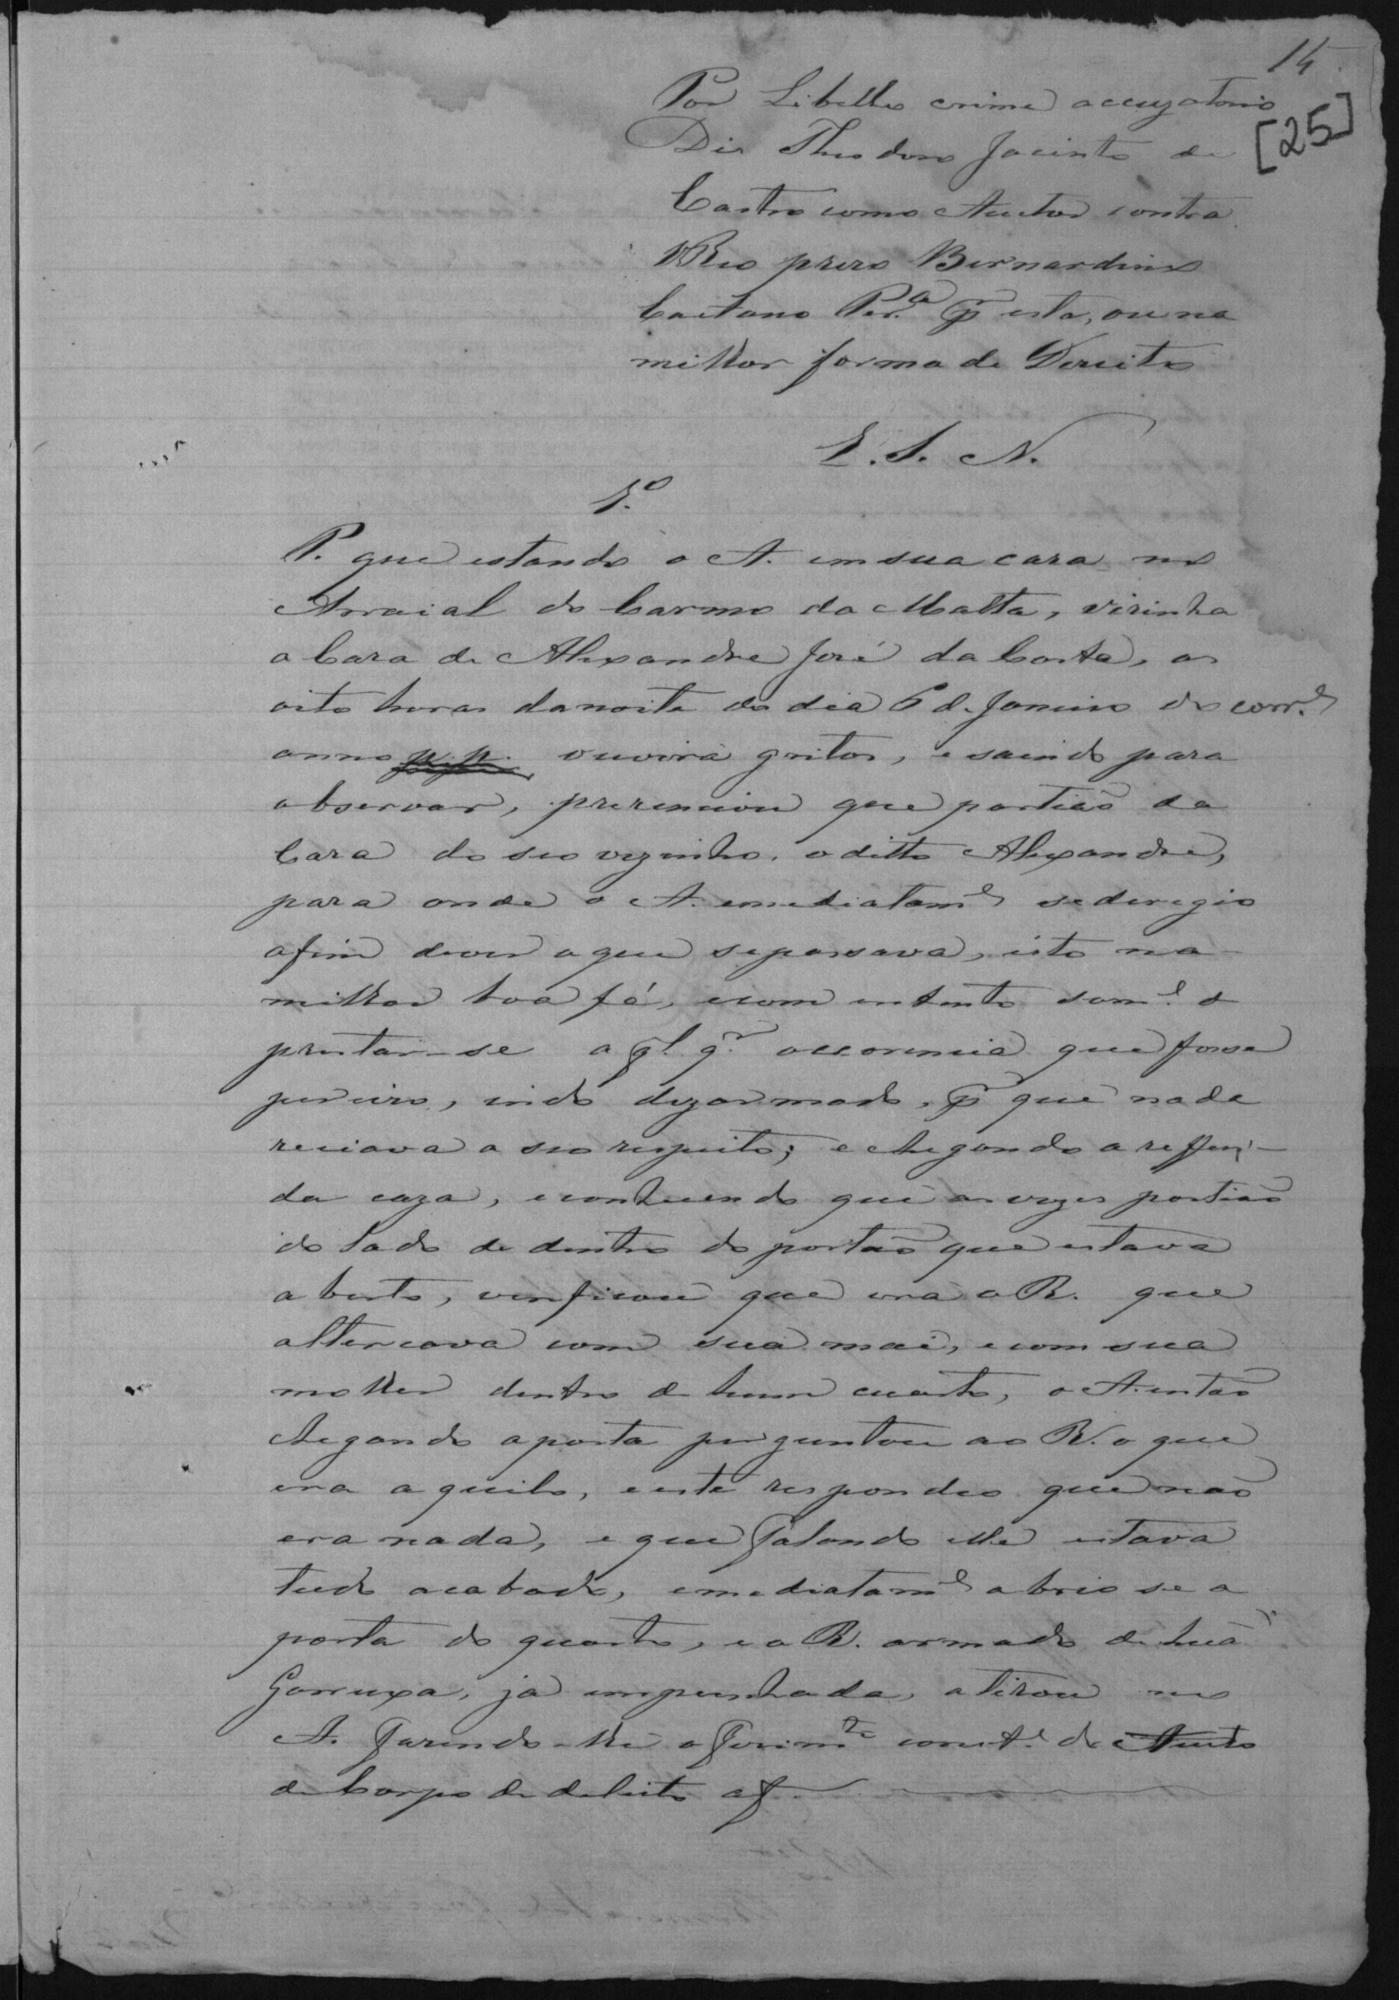 14
[25]
Por Libello crime accuzatorio
Diz Theodoro Jacinto de
Castro como Auctor contra
o Reo prezo Bernardino
Caetano Per.ª p. esta, ou na
milhor forma de Direito
E. S. N.
1.º
P. que estando o A. em sua casa no
Arraial do Carmo da Matta, visinha
a Casa de Alexandre José da Costa, as
oito horas da noite do dia 6 de Janeiro do corr.e
anno p.p. ouvira gritos, e saindo para
observar, presenciou que partião da
Casa do seo vezinho, o ditto Alexandre,
para onde o A. emediatam.e se deregio
afim de ver o que se passava, isto na
milhor boa fé, e com intento som.e de
prestar-se a ql. qr. occorencia que fosse
perciso, indo dezarmado, p. que nada
reciava a seo respeito; e chegando a reffiri-
da caza, e conhecendo que as vozes partião
do lado de dentro do portão que estava
aberto, verificou que era o R. que
altercava com sua mai, e com sua
molher dentro de hum cuarto, o A. então
chegando a porta perguntou ao R. o que
era aquilo, e este respondeo que não
era nada, e que falando elle estava
tudo acabado, emediatam.e abrio se a
porta do quarto, e o R. armado de huã
Garruxa, já impunhada, atirou no
A. fazendo-lhe o ferim.to const.e do Auto
de Corpo de delicto a f